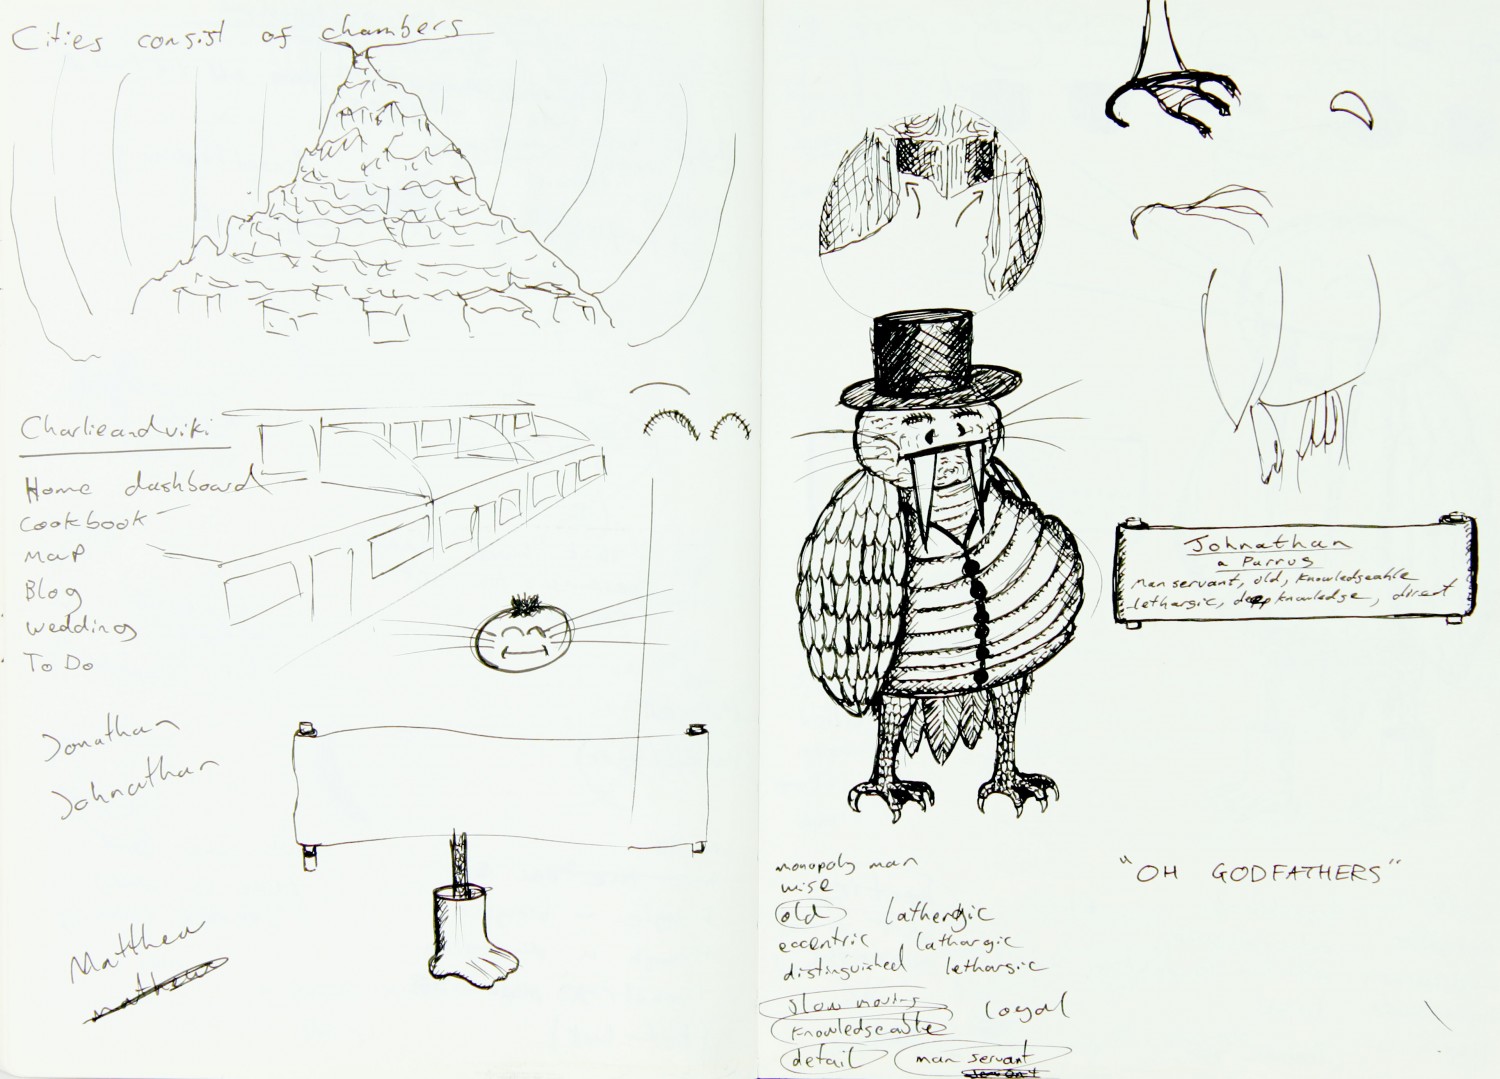 Cities consist of chambers
Charlieandviki
Home dashboard
Cookbook
Map
Blog
Wedding
To Do
Jonathan
Johnathan
Matthew
mathew
Johnathan
a Parrus
Man servant, old, knowledgeable
lethargic, deep knowledge, direct
monopoly man
wise
old lathergic
eccentric lathargic
distinguished lethargic
slow moving loyal
knowledgeable
detail man servant
"OH GODFATHERS"